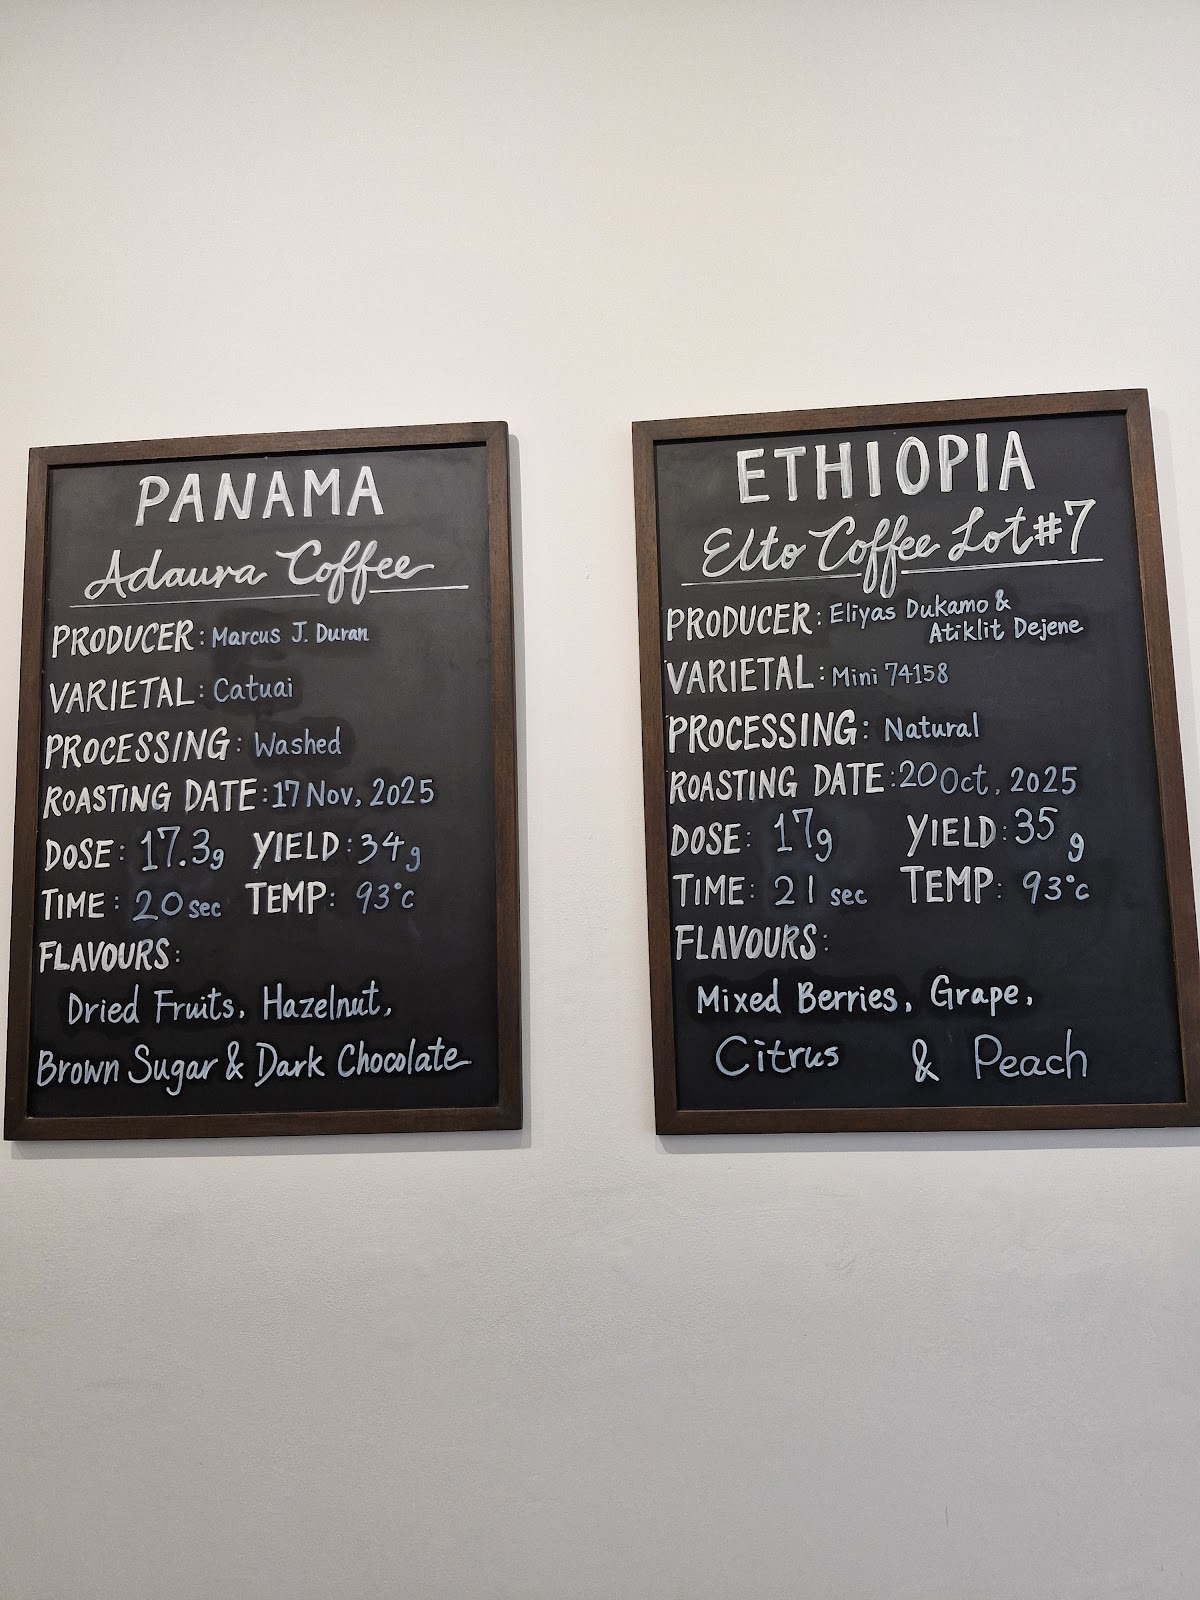 PANAMA
Adaura Coffee
PRODUCER: Marcus J. Duran
VARIETAL: Catuai
PROCESSING: Washed
ROASTING DATE: 17 Nov, 2025
DOSE: 17.3g YIELD: 34g
TIME: 20 sec TEMP: 93°c
FLAVOURS:
Dried Fruits, Hazelnut,
Brown Sugar & Dark Chocolate
ETHIOPIA
Elto Coffee Lot#7
PRODUCER: Eliyas Dukamo &
Atiklit Dejene
VARIETAL: Mini 74158
PROCESSING: Natural
ROASTING DATE: 20 Oct, 2025
DOSE: 17g YIELD: 35 g
TIME: 21 sec TEMP: 93°c
FLAVOURS:
Mixed Berries, Grape,
Citrus & Peach